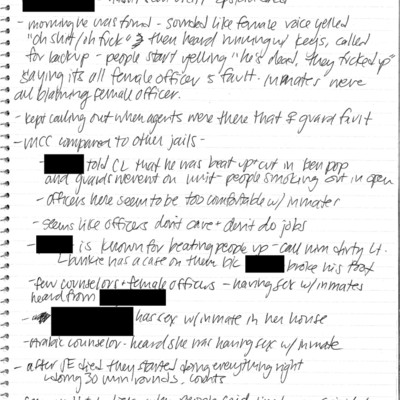 - morning he was found - sounded like female voice yelled
"oh shit/oh fuck" → then heard running w/ keys, called
for backup - people start yelling "he's dead, they fucked up"
saying its all female officer's fault. Inmates were
all blaming female officer.
- kept calling out when agents were there that ♀ guard fault
- MCC comparison to other jails -
- told CL that he was beat up + cut in gen pop
and guards weren't on unit - people smoking out in open
- officers here seem to be too comfortable w/ inmates
- seems like officers don't care + don't do jobs
- is known for beating people up - call him dirty Lt.
bunkie has a case on them b/c broke his
- few counselors + female officers - having sex w/ inmates
heard from
- has sex w/ inmate in her house
- counselor - heard she was having sex w/ inmate
- after JE died they started doing everything right
doing 30 min rounds, counts